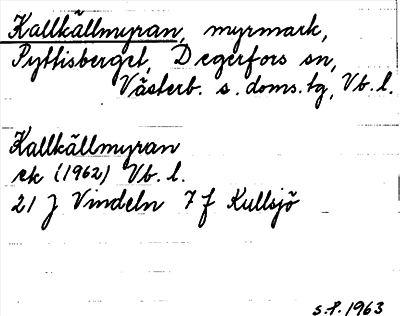 Kallkällmyran, myrmark,
Pyttisberget, Degerfors sn,
Västerb. s. doms.tg, Vb. l.
Kallkällmyran
ek (1962) Vb. l.
21 J Vindeln 7 f Kullsjö
s.P. 1963